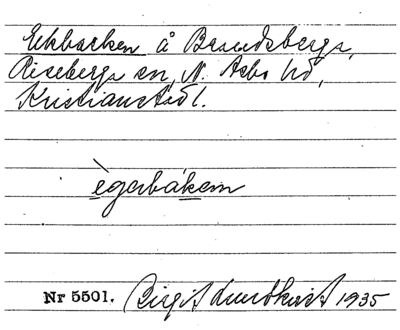 Ekbacken å Brandsberga,
Riseberga sn, N. Åsbo hd,
Kristianst. l.
ègerbakem
Nr 5501. Birgit Lundkvist 1935